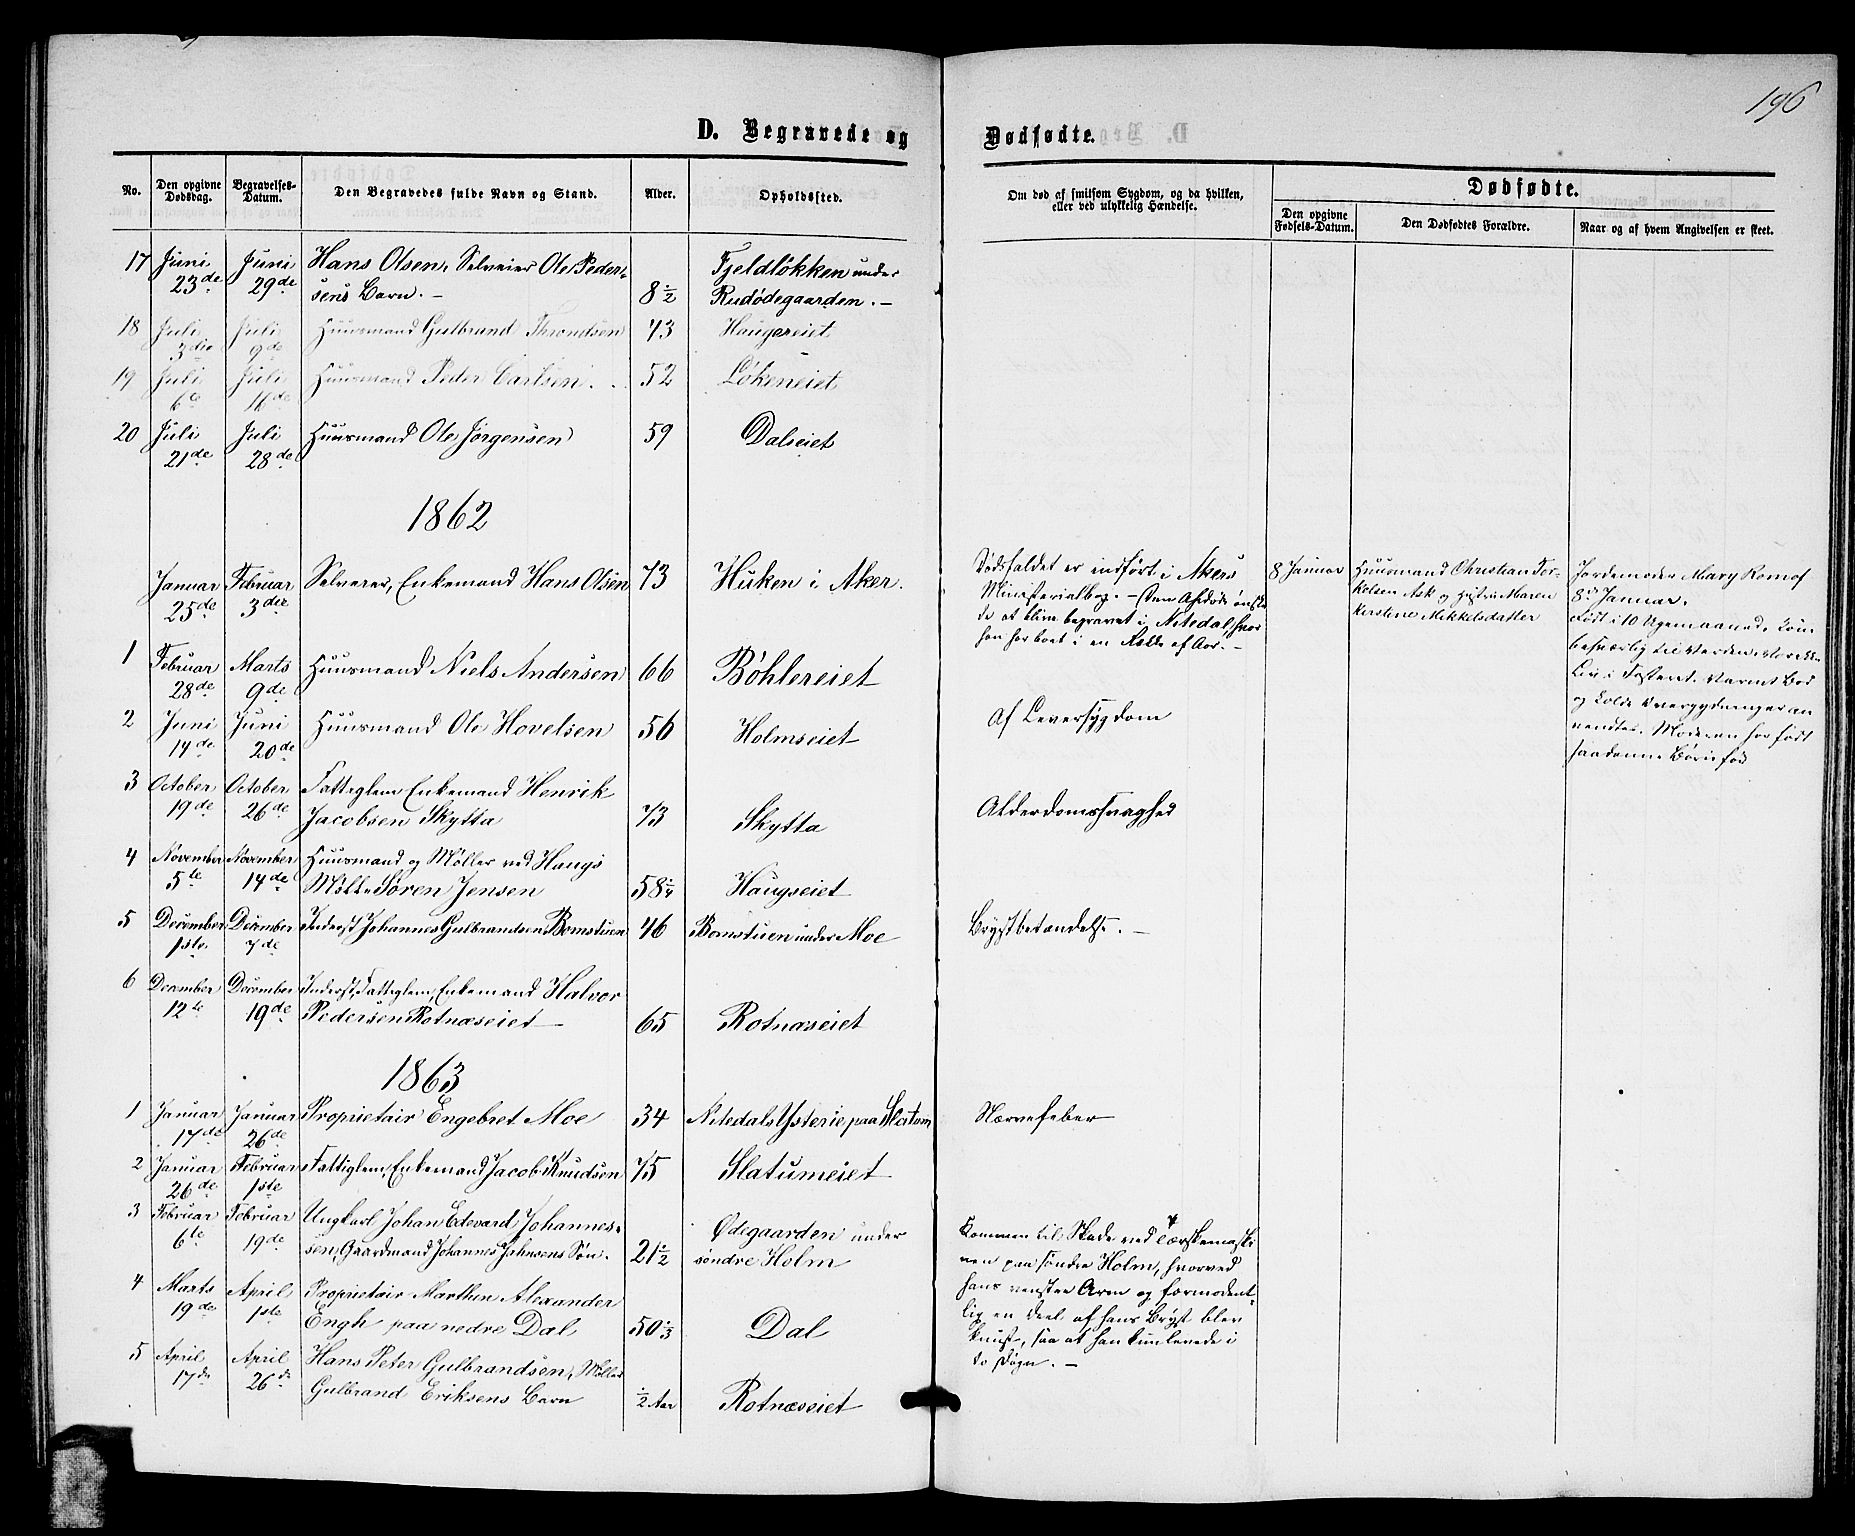 196
D. Begravede og Dødfødte.
No. Den opgivne Dødsdag. Begravelses-Datum. Den Begravedes fulde Navn og Stand. Alder. Opholdssted. Om død af smitsom Sygdom, og da hvilken, eller ved ulykkelig Hændelse. Dødfødte.
Den opgivne Fødsels-Datum. Den Dødfødtes Forældre. Naar og af hvem Angivelsen er skeet.
17 Juni Juni Hans Olsen, Selveier Ole Peder- Fjeldløkken under
23de 29de sens Barn. - 8 1/2 Rudødegaarden. -
18 Juli Juli Huusmand Gulbrand Throndsen 73 Haugereiet
3die 9de
19 Juli Juli Huusmand Peder Carlsen. 52 Løkeneiet
6te 16de
20 Juli Juli Huusmand Ole Jørgensen 59 Dalseiet
21de 28de
1862
Januar Februar Selveier, Enkemand Hans Olsen 73 Huken i Aker.
25de 3die
Dødsfaldet er indført i Akers
Ministerialbog. - Den Afdøde ønske-
de at blive begravet i Nitedal, hvor
han har boet i en Række af Aar. -
8 Januar Huusmand Christian Ter-
kelsen Ask og Hustru Maren
Kirstine Mikkelsdatter
Jordemoder Mary Romof
8de Januar.
Født i 10 Ugemaaned. Kom
besværlig til Verden. Var ikke
Liv i Fosteret. Varmt Bad
og kolde Overgydninger an
vendtes. Moderen har født
saadanne Børn før
1 Februar Marts Huusmand Niels Andersen 66 Bøhlereiet
28de 9de
2 Juni Juni Huusmand Ole Hovelsen 56 Holmseiet Af Leversygdom
14de 20de
3 October October Fattiglem Enkemand Henrik
19de 26de Jacobsen Skytta 73 Skytta Alderdomssvaghed
4 November November Huusmand og Møller ved Haugs
5te 14de Mølle Søren Jensen 58 1/4 Haugseiet
5 December December Inderst Johannes Gulbrandsen Bomstuen 46 Bomstuen under Moe Brystbetændelse. -
1ste 7de
6 December December Inderst, Fattiglem, Enkemand Halvor
12te 19de Pedersen Rotnæseiet - 65 Rotnæseiet
1863
1 Januar Januar Proprietair Engebret Moe 34 Nitedals Ysterie paa Slatum Nærvefeber
17de 26de
2 Januar Februar Fattiglem, Enkemand Jacob Knudsen 75 Slatumeiet
26de 1ste
3 Februar Februar Ungkarl Johan Edevard Johannes- Ødegaarden under
6te 19de sen, Gaardmand Johannes Johnsens Søn. 21 1/2 søndre Holm
Kommen til Skade ved Tærskemaski
nen paa søndre Holm, hvorved
hans venstre Arm og formodent-
lig en Deel af hans Bryst blev
knust, saa at han kun levede i
to Døgn. -
4 Marts April Proprietair Marthin Alexander
19de 1ste Engh paa nedre Dal 50 1/3 Dal
5 April April Hans Peter Gulbrandsen, Møller
17de 26de Gulbrand Eriksens Barn 1/2 Aar Rotnæseiet